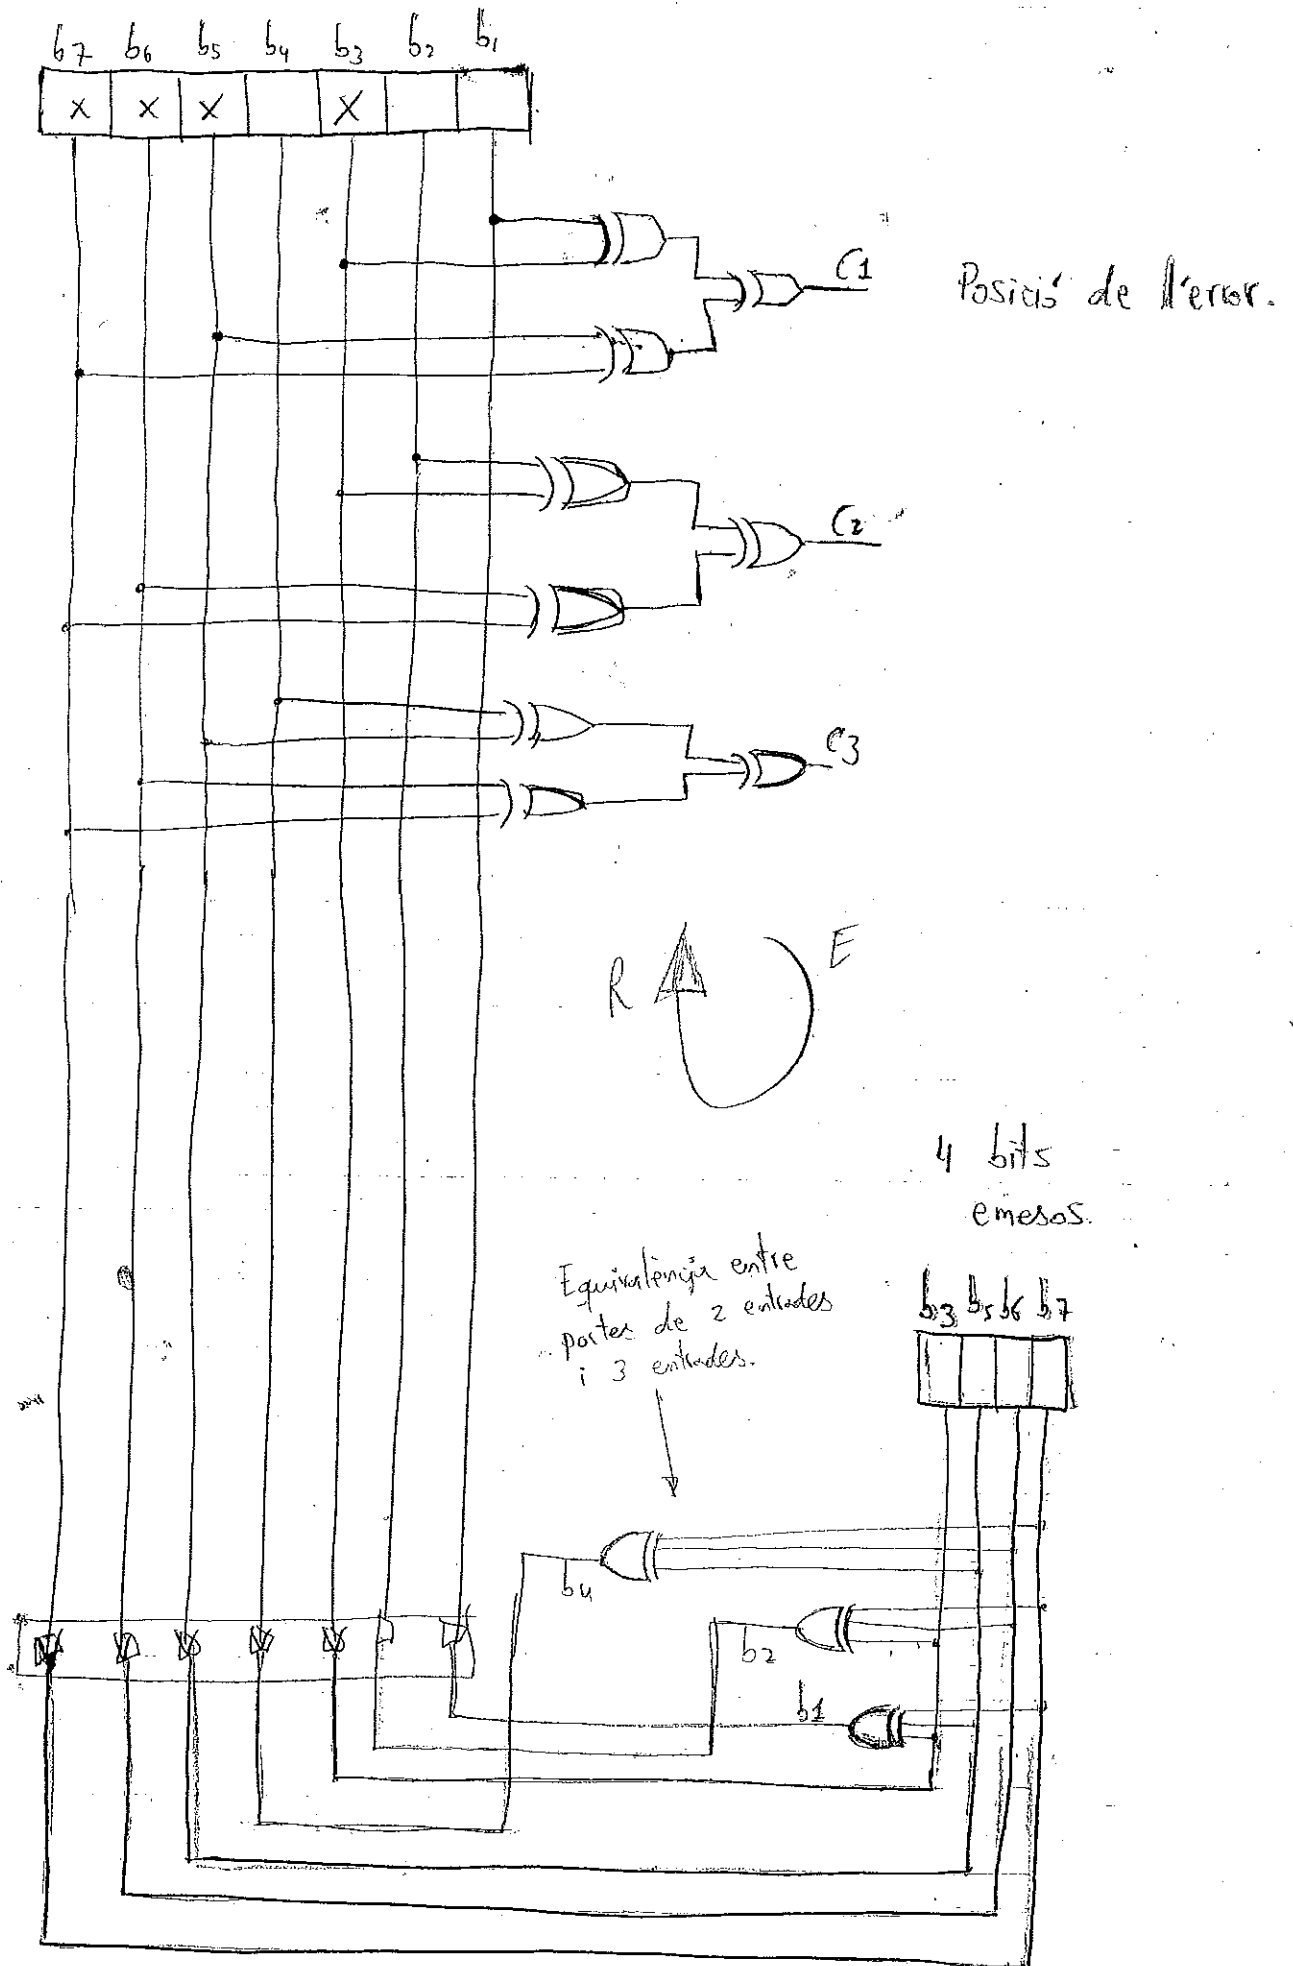 b7 b6 b5 b4 b3 b2 b1
x x x x
C1
Posició de l'error.
C2
C3
R E
4 bits
emesos.
Equivalència entre
portes de 2 entrades
i 3 entrades.
b3 b5 b6 b7
b4
b2
b1